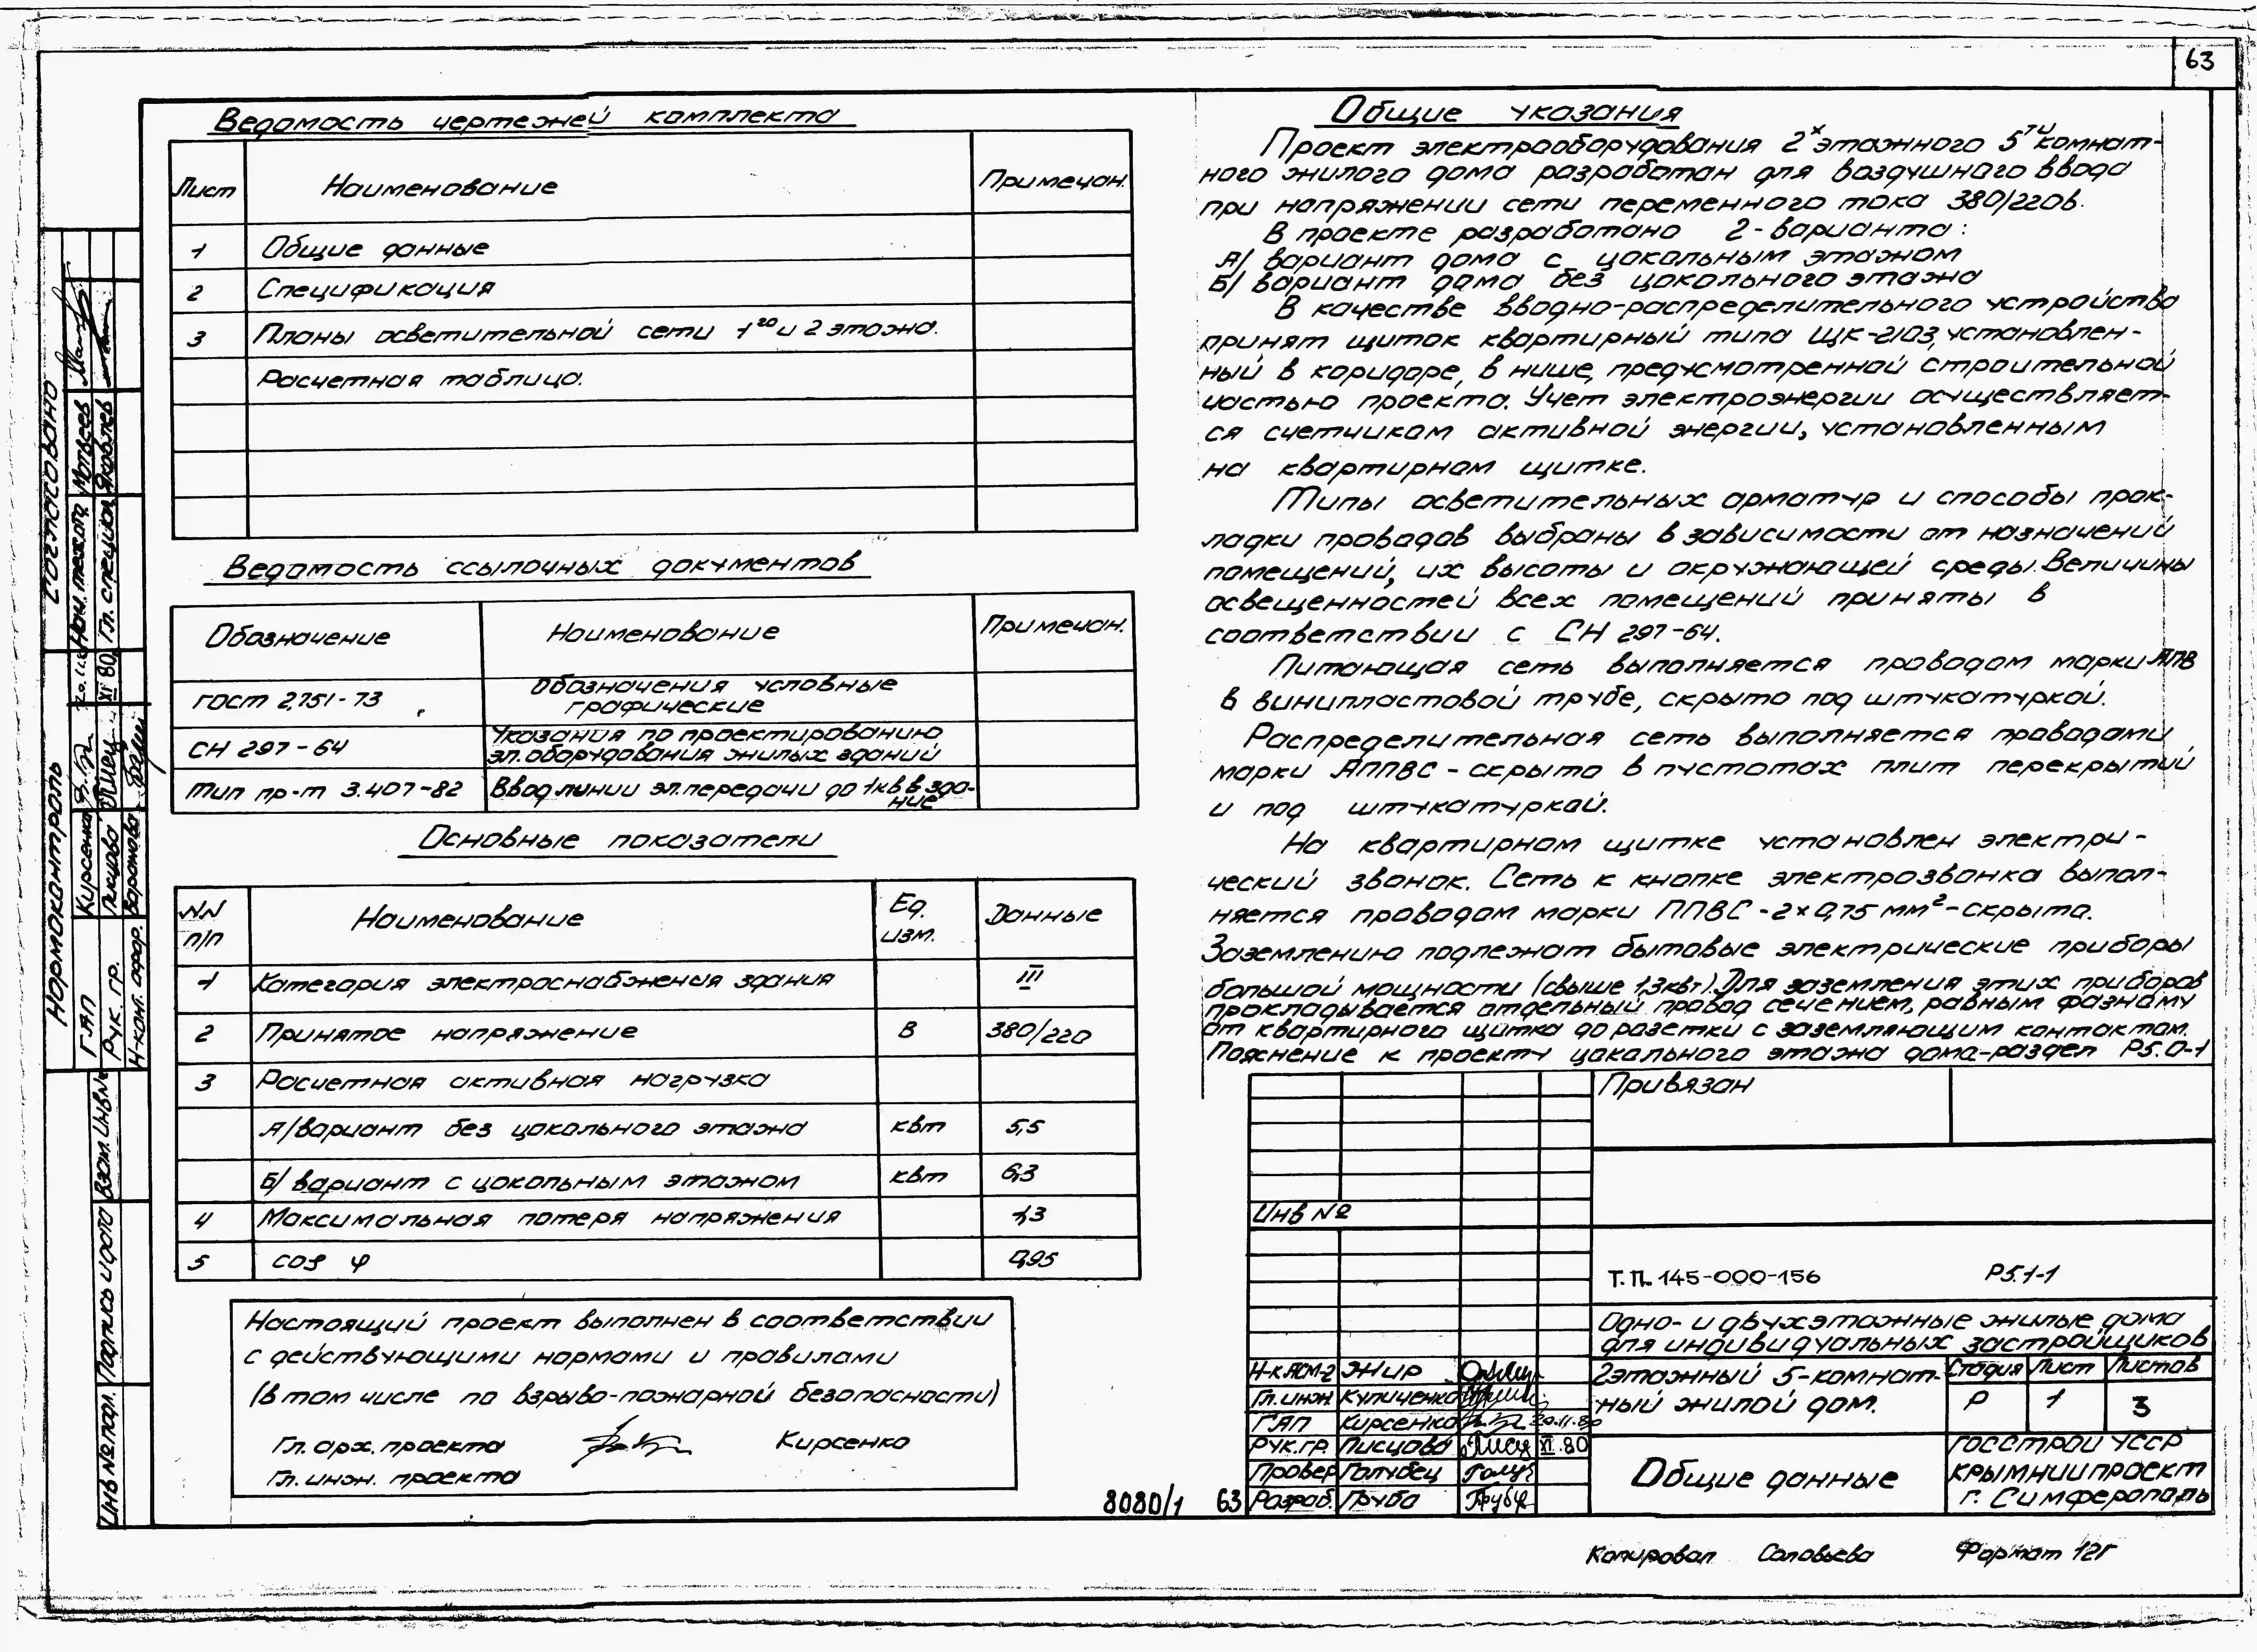 63
Ведомость чертежей комплекта
Лист Наименование Примечан.
1 Общие данные
2 Спецификация
3 Планы осветительной сети 1го и 2 этажа.
Расчетная таблица.
Ведомость ссылочных документов
Обозначение Наименование Примечан.
ГОСТ 2.751-73 Обозначения условные
графические
СН 297-64 Указания по проектированию
эл. оборудования жилых зданий
Тип пр-т 3.407-82 Ввод линии эл. передачи до 1кв в зда-
ние
Основные показатели
NN
п/п Наименование Ед.
изм. Данные
1 Категория электроснабжения здания III
2 Принятое напряжение В 380/220
3 Расчетная активная нагрузка
А/ вариант без цокольного этажа квт 5,5
Б/ вариант с цокольным этажом квт 6,3
4 Максимальная потеря напряжения 1,3
5 cos φ 0,95
Настоящий проект выполнен в соответствии
с действующими нормами и правилами
(в том числе по взрыво-пожарной безопасности)
Гл. арх. проекта Кирсенко
Гл. инж. проекта
Общие указания
Проект электрооборудования 2х этажного 5ти комнат-
ного жилого дома разработан для воздушного ввода
при напряжении сети переменного тока 380/220в.
В проекте разработано 2-варианта:
А/ вариант дома с цокольным этажом
Б/ вариант дома без цокольного этажа
В качестве вводно-распределительного устройства
принят щиток квартирный типа ЩК-2103, установлен-
ный в коридоре, в нише, предусмотренной строительной
частью проекта. Учет электроэнергии осуществляет-
ся счетчиком активной энергии, установленным
на квартирном щитке.
Типы осветительных арматур и способы прок-
ладки проводов выбраны в зависимости от назначений
помещений, их высоты и окружающей среды. Величины
освещенностей всех помещений приняты в
соответствии с СН 297-64.
Питающая сеть выполняется проводом марки АПВ
в винипластовой трубе, скрыто под штукатуркой.
Распределительная сеть выполняется проводами
марки АППВС - скрыто в пустотах плит перекрытий
и под штукатуркой.
На квартирном щитке установлен электри-
ческий звонок. Сеть к кнопке электрозвонка выпол-
няется проводом марки ППВС-2х0,75 мм²-скрыто.
Заземлению подлежат бытовые электрические приборы
большой мощности (свыше 1,3квт). Для заземления этих приборов
прокладывается отдельный провод сечением, равным фазному
от квартирного щитка до розетки с заземляющим контактом.
Пояснение к проекту цокольного этажа дома-раздел Р5.0-1
Привязан
Инв №
Т.П. 145-000-156 Р5.1-1
Одно- и двухэтажные жилые дома
для индивидуальных застройщиков
2этажный 5-комнат-
ный жилой дом.
Стадия Лист Листов
Р 1 3
Общие данные
Госстрой УССР
Крымниипроект
г. Симферополь
Н-к АСМ-2 Жир
Гл. инж. Куличенко
ГАП Кирсенко 20.11.80
Рук. гр. Писцова XI.80
Провер Голубец
Разраб. Груба
8080/1 63
Копировал Соловьева Формат 12г
Согласовано
Нач. техотд. Матвеев
Гл. специал. Яковлев
Нормоконтроль
ГАП Кирсенко
Рук. гр. Писцова XI 80
Н-конт. офор. Воронова
Взам. инв №
Подпись и дата
Инв № подл.